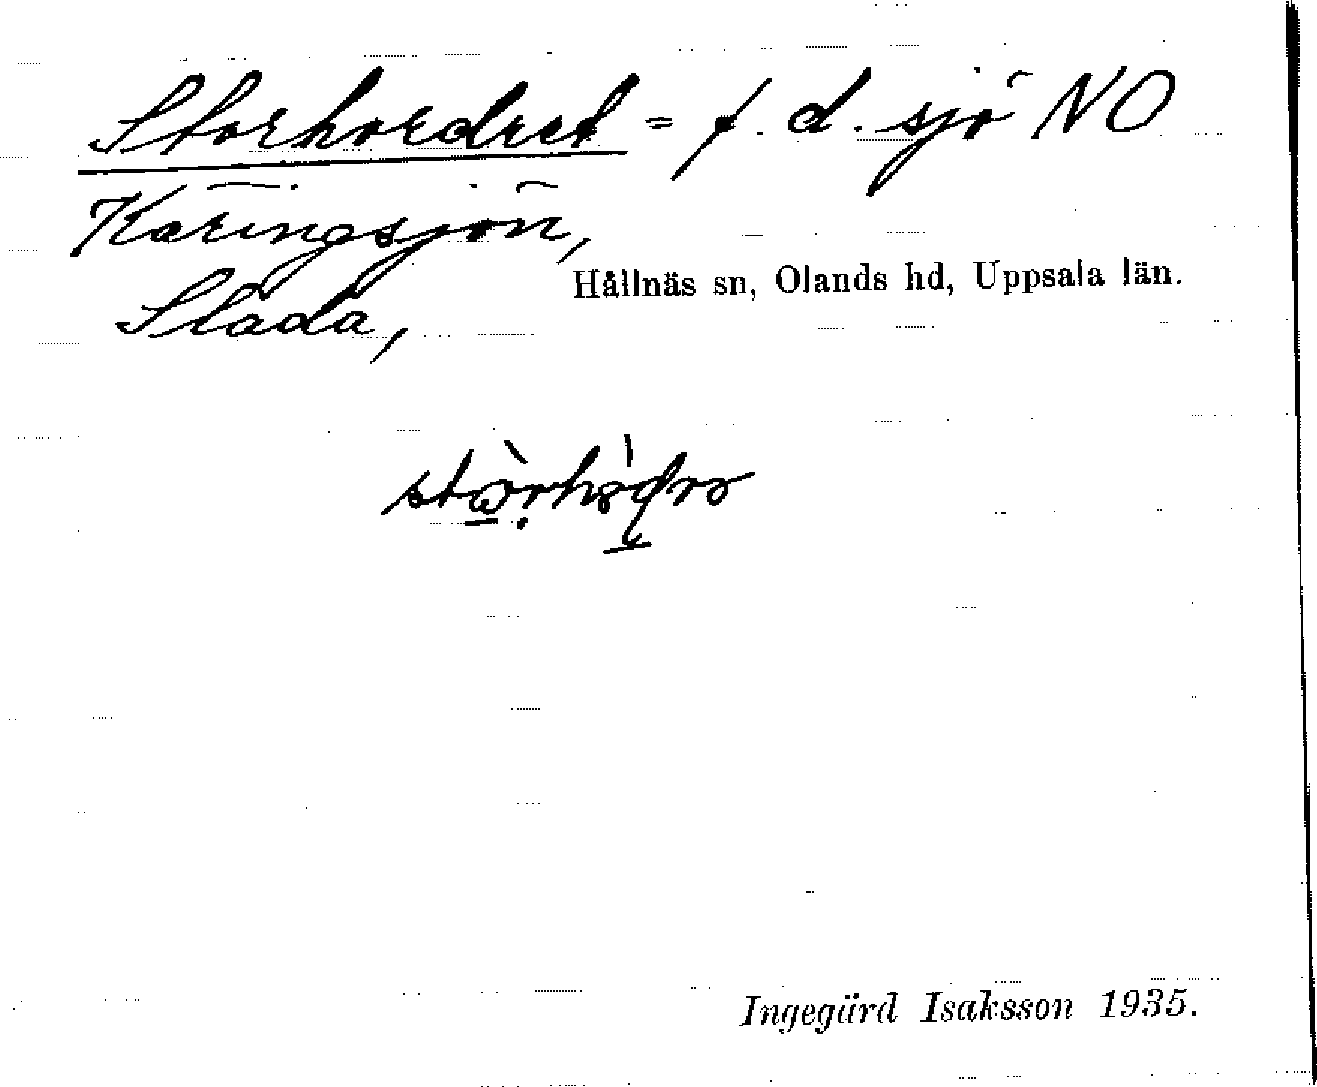 Storhordret = f. d. sjö NO
Käringsjön,
Hållnäs sn, Olands hd, Uppsala län.
Slada,
Ingegärd Isaksson 1935.